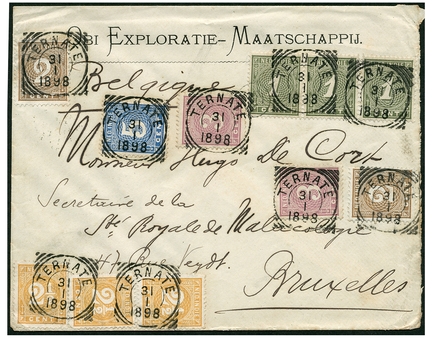 OBI EXPLORATIE-MAATSCHAPPIJ.
Belgique
Monsieur Hugo De Cort
Secretaire de la
Sté Royale de Malacologie
Bruxelles
TERNATE 31 1 1898
TERNATE 31 1 1898
TERNATE 31 1 1898
TERNATE 31 1 1898
TERNATE 31 1 1898
TERNATE 31 1 1898
TERNATE 31 1 1898
TERNATE 31 1 1898
TERNATE 31 1 1898